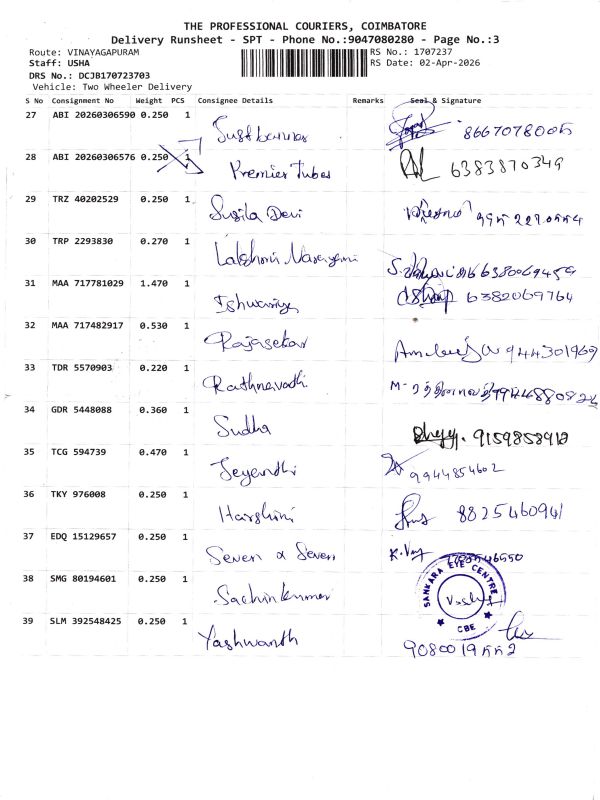 THE PROFESSIONAL COURIERS, COIMBATORE
Delivery Runsheet - SPT - Phone No.:9047080280 - Page No.:3
Route: VINAYAGAPURAM
Staff: USHA
DRS No.: DCJB170723703
Vehicle: Two Wheeler Delivery
RS No.: 1707237
RS Date: 02-Apr-2026
S No Consignment No Weight PCS Consignee Details Remarks Seal & Signature
27 ABI 20260306590 0.250 1 8667078005
28 ABI 20260306576 0.250 1 Premier Tubes 6383870349
29 TRZ 40202529 0.250 1 Susila Devi
30 TRP 2293830 0.270 1 Lakshmi Narayani 6380069459
31 MAA 717781029 1.470 1 Ishwariya 6382069764
32 MAA 717482917 0.530 1 Rajasekar 944301969
33 TDR 5570903 0.220 1 Rathnavathi
34 GDR 5448088 0.360 1 Sudha 9159858918
35 TCG 594739 0.470 1 Jeyanthi 9944854602
36 TKY 976008 0.250 1 Harshini 8825460941
37 EDQ 15129657 0.250 1 Seven & Seven K.Vay
38 SMG 80194601 0.250 1 Sachinkumar
SANKARA EYE CENTRE
CBE
39 SLM 392548425 0.250 1 Yashwanth